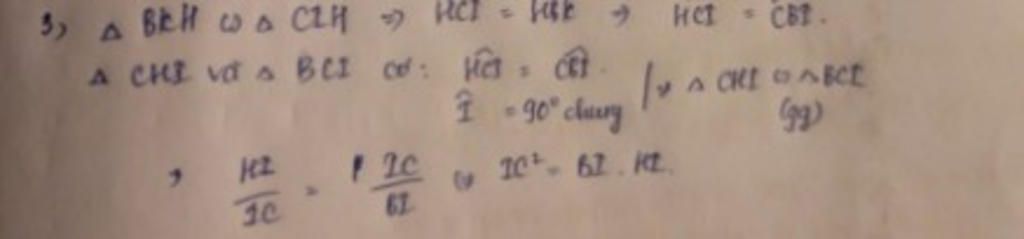 3, △ BKH ∽ △ CIH => HCI = HBK => HCI = CBI.
△ CHI và △ BCI có: HCI = CBI.
I = 90° chung => △ CHI ∽ △ BCI
(gg)
=> HI/IC = IC/BI <=> IC² = BI . HI.